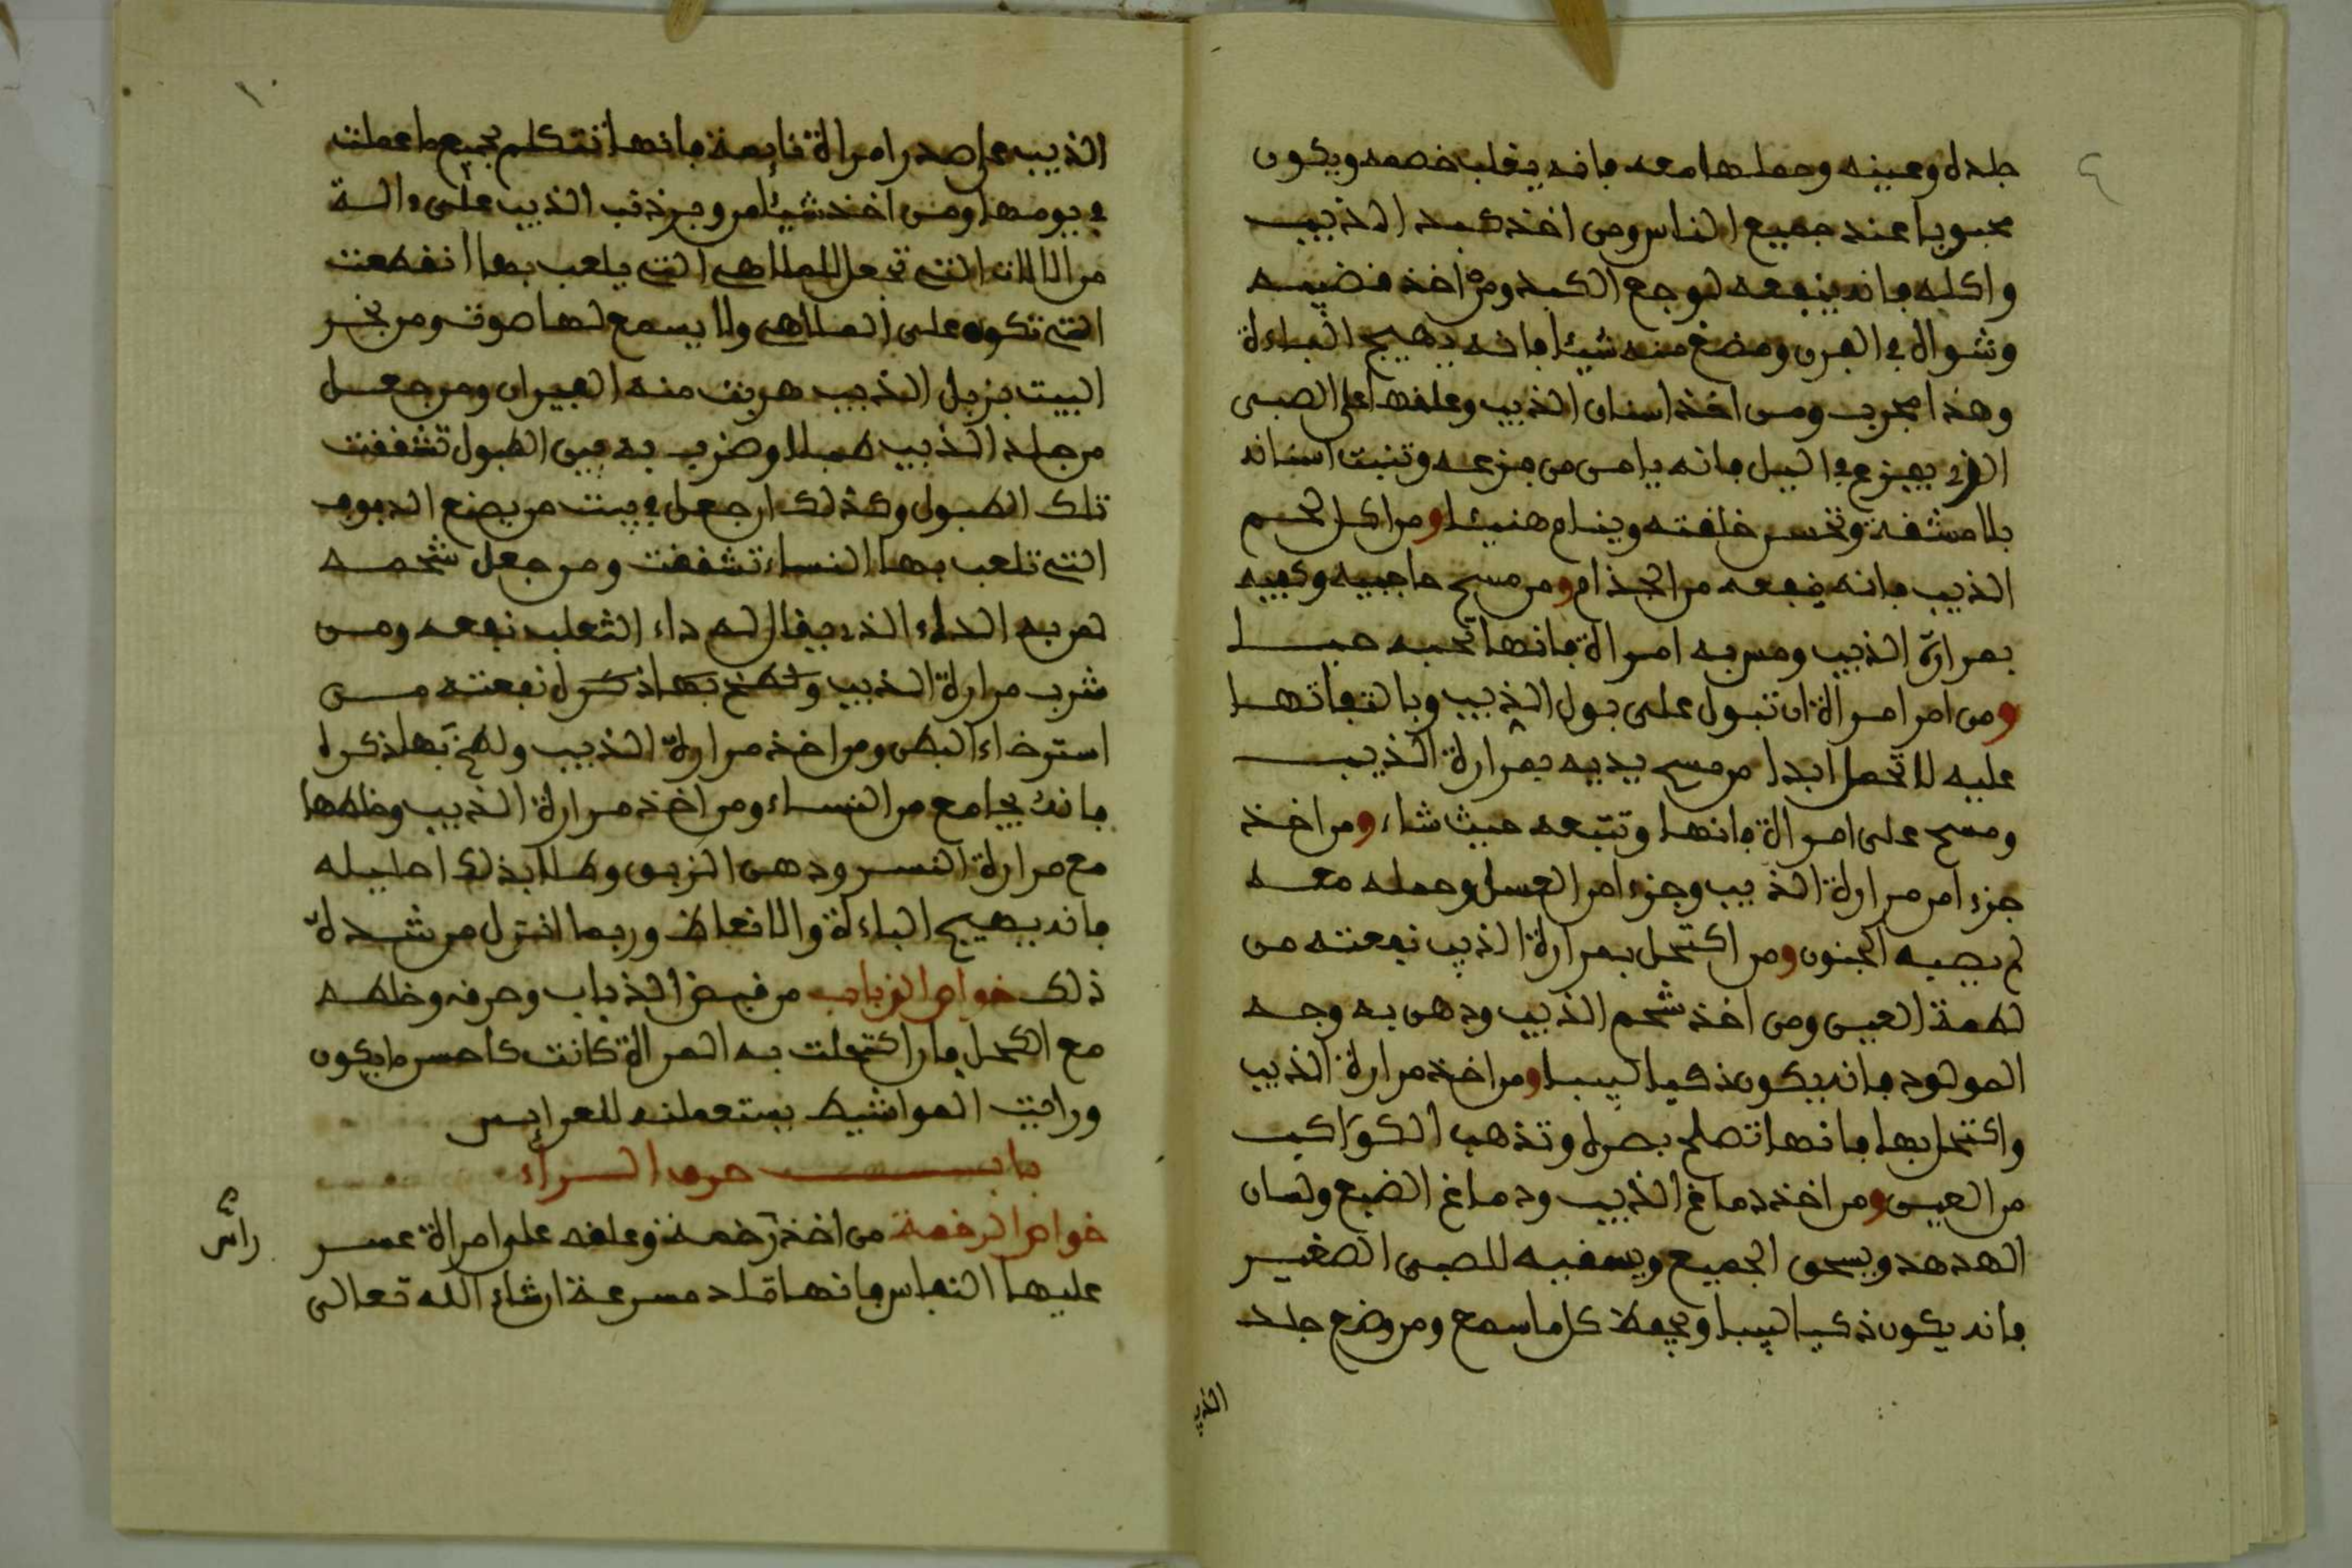 جلده وعينه وحملها معه فانه يغلب خصمه ويكون
محبوبا عند جميع الناس ومن اخذ كبد الذيب
واكله فانه ينفعه لوجع الكبد ومن اخذ قضيبه
وشواه في الفرن ومضغ منه شيئا فانه يهيج الباءة
وهذا مجرب ومن اخذ اسنان الذيب وعلقها على الصبى
الذي يفزع في اليل فانه يامن من فزعه وتنبت اسنانه
بلا مشقة وتحسن خلقته وينام هنيئا ومن اكل لحم
الذيب فانه ينفعه من الجذام ومن مسح حاجبيه وكعبيه
بمرارة الذيب ومس به امراة فانها تحبه حبا
ومن امر امراة ان تبول على بول الذيب وبالتفاتها
عليه لا تحمل ابدا من مسح يديه بمرارة الذيب
ومسح على امراة فانها وتتبعه حيث شاء ومن اخذ
جزءا من مرارة الذيب وجزءا من العسل وحمله معه
لم يصبه الجنون ومن اكتحل بمرارة الذيب نفعته من
لطمة العين ومن اخذ شحم الذيب ودهن به وجه
المولود فانه يكون ذكيا لبيبا ومن اخذ مرارة الذيب
واكتحل بها فانها تصلح بصره وتذهب الكواكب
من العين ومن اخذ دماغ الذيب ودماغ الضبع ولسان
الهدهد ويسحق الجميع ويسقيه للصبى الصغير
فانه يكون ذكيا لبيبا ويحفظ كل ما سمع ومن وضع جلد
الذيب
١٠
الذيب على صدر امراة نايمة فانها تتكلم بجميع ما عملت
في يومها ومن اخذ شيئا من وبر ذنب الذيب على ءالة
من الالات التي تجعل للملاهي التي يلعب بها انقطعت
التي تكون على الملاهي ولا يسمع لها صوت ومن بخر
البيت بزبل الذيب هربت منه الفيران ومن جعل
من جلد الذيب طبلا وضرب به بين الطبول تشققت
تلك الطبول وكذلك ان جعل في بيت من يصنع الدفوف
التي تلعب بها النساء تشققت ومن جعل شحمه
لمن به الداء الذي يقال له داء الثعلب نفعه ومن
شرب مرارة الذيب ولطخ بها ذكره نفعته من
استرخاء البطن ومن اخذ مرارة الذيب ولطخ بها ذكره
فانه يجامع من النساء ومن اخذ مرارة الذيب وخلطها
مع مرارة النسر ودهن الزبق وطلا بذلك احليله
فانه يهيج الباءة والانعاظ وربما انتزل من شدة
ذلك خواص الذباب من قبض الذباب وحرقه وخلطه
مع الكحل فان اكتحلت به المراة كانت كاحسن ما يكون
ورايت المواشيط يستعملنه للعرايس
باب حرف الراء
خواص الرخمة من اخذ رخمة وعلقه على امراة عسر
عليها النفاس فانها تلد مسرعة ان شاء الله تعالى
راس